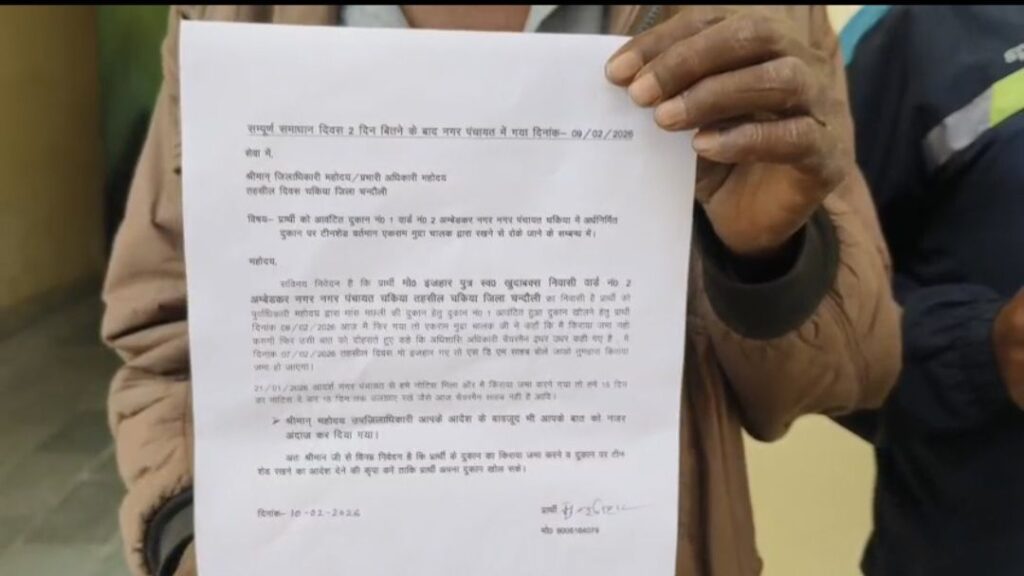 सम्पूर्ण समाधान दिवस 2 दिन बितने के बाद नगर पंचायत में गया दिनांक– 09/02/2026
सेवा में,
श्रीमान् जिलाधिकारी महोदय/प्रभारी अधिकारी महोदय
तहसील दिवस चकिया जिला चन्दौली
विषय– प्रार्थी को आवंटित दुकान नं0 1 वार्ड नं0 2 अम्बेडकर नगर नगर पंचायत चकिया में अर्धनिर्मित
दुकान पर टीनशेड वर्तमान एकराम गुद्रा चालक द्वारा रखने से रोके जाने के सम्बन्ध में।
महोदय,
सविनय निवेदन है कि प्रार्थी मो0 इजहार पुत्र स्व0 खुदाबक्स निवासी वार्ड नं0 2
अम्बेडकर नगर नगर पंचायत चकिया तहसील चकिया जिला चन्दौली का निवासी है प्रार्थी को
महोदय द्वारा मांस मछली की दुकान हेतु दुकान नं0 1 आवंटित हुआ दुकान खोलने हेतु प्रार्थी
दिनांक 09/02/2026 आज मैं फिर गया तो एकराम गुद्रा चालक जी ने कहाँ कि मैं किराया जमा नही
करूगी फिर उसी बात को दोहराते हुए कहे कि अधिशासि अधिकारी चेयरमैन इधर उधर कही गए है, मैं
दिनांक 07/02/2026 तहसील दिवस मो इजहार गए तो एस डि एम साहब बोले जाओ तुम्हारा किराया
जमा हो जाएगा।
21/01/2026 आदर्श नगर पंचायत से हमे नोटिस मिला और मैं किराया जमा करने गया तो हमे 15 दिन
का नोटिस दे कर 15 दिन तक रखे जैसे आज चेयरमैन साहब नही है आदि।
➤ श्रीमान् महोदय उपजिलाधिकारी आपके आदेश के बावजूद भी आपके बात को नजर
अंदाज कर दिया गया।
अतः श्रीमान जी से विनम्र निवेदन है कि प्रार्थी के दुकान का किराया जमा करने व दुकान पर टीन
शेड रखने का आदेश देने की कृपा करें ताकि प्रार्थी अपना दुकान खोल सके।
दिनांक– 10-02-2026
प्रार्थी
मो0